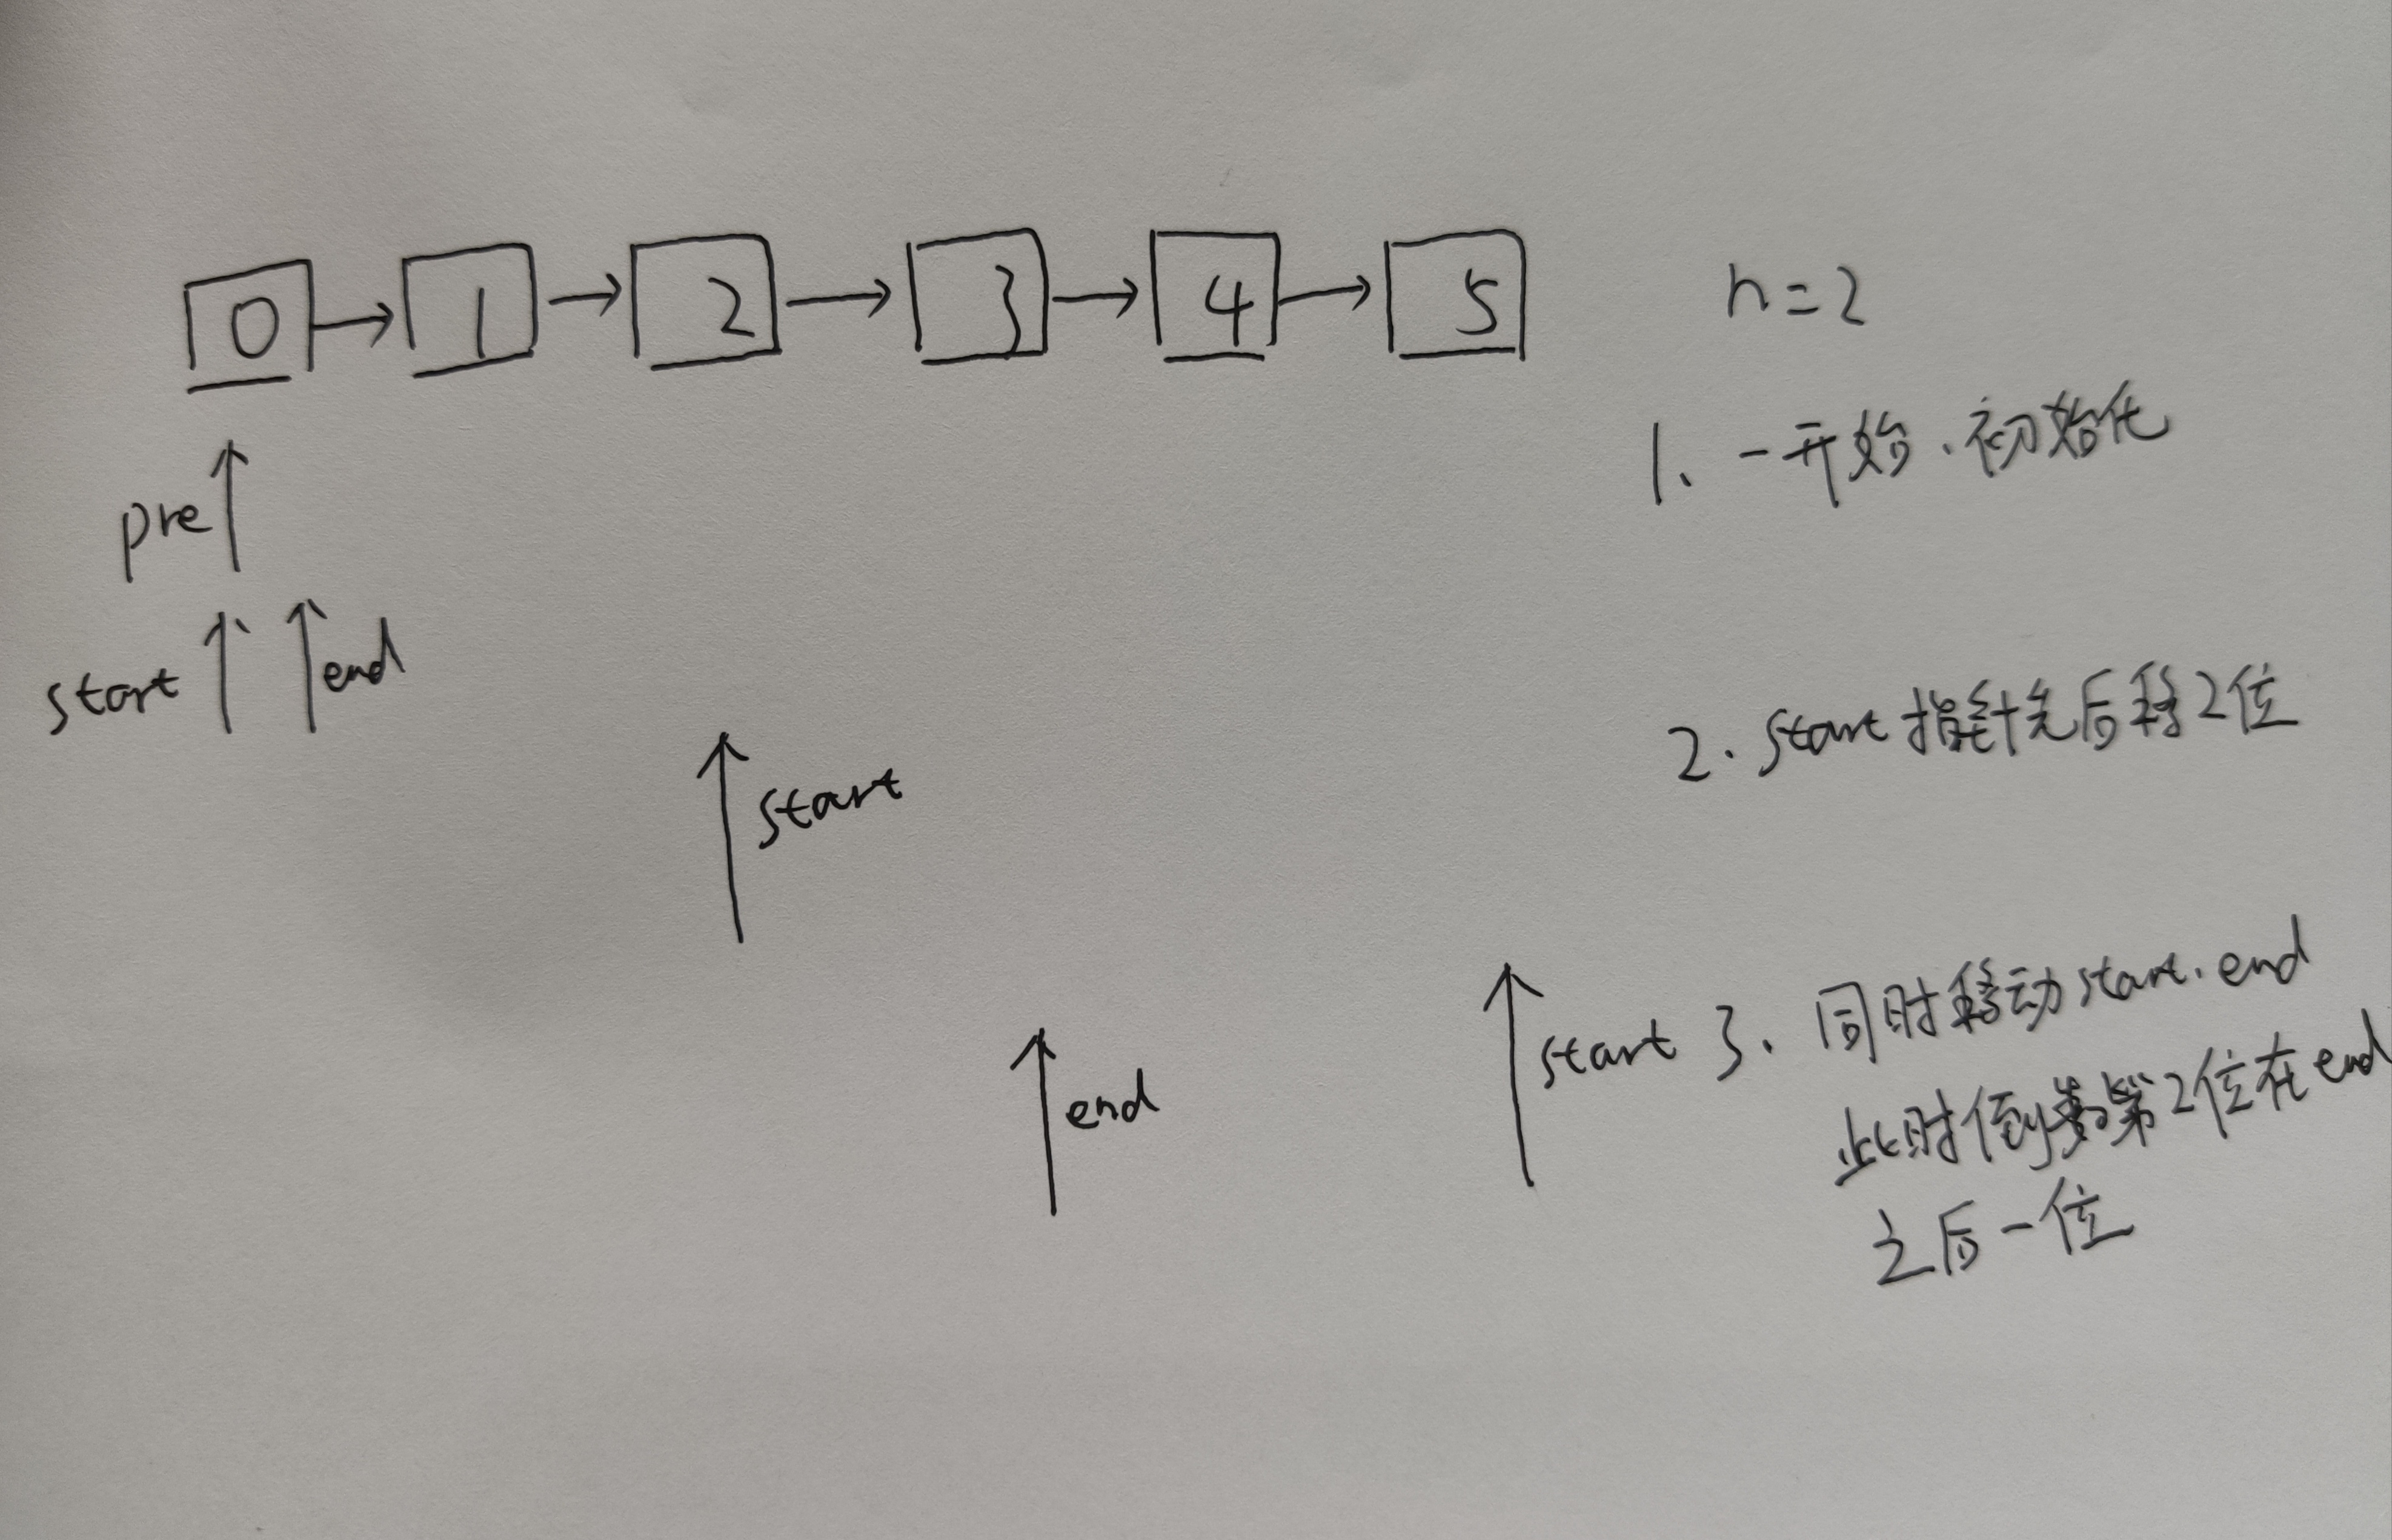 0 → 1 → 2 → 3 → 4 → 5
n=2
1、一开始、初始化
pre
start end
2. start指针先后移2位
start
start
3、同时移动start、end
end
此时倒数第2位在end
之后一位